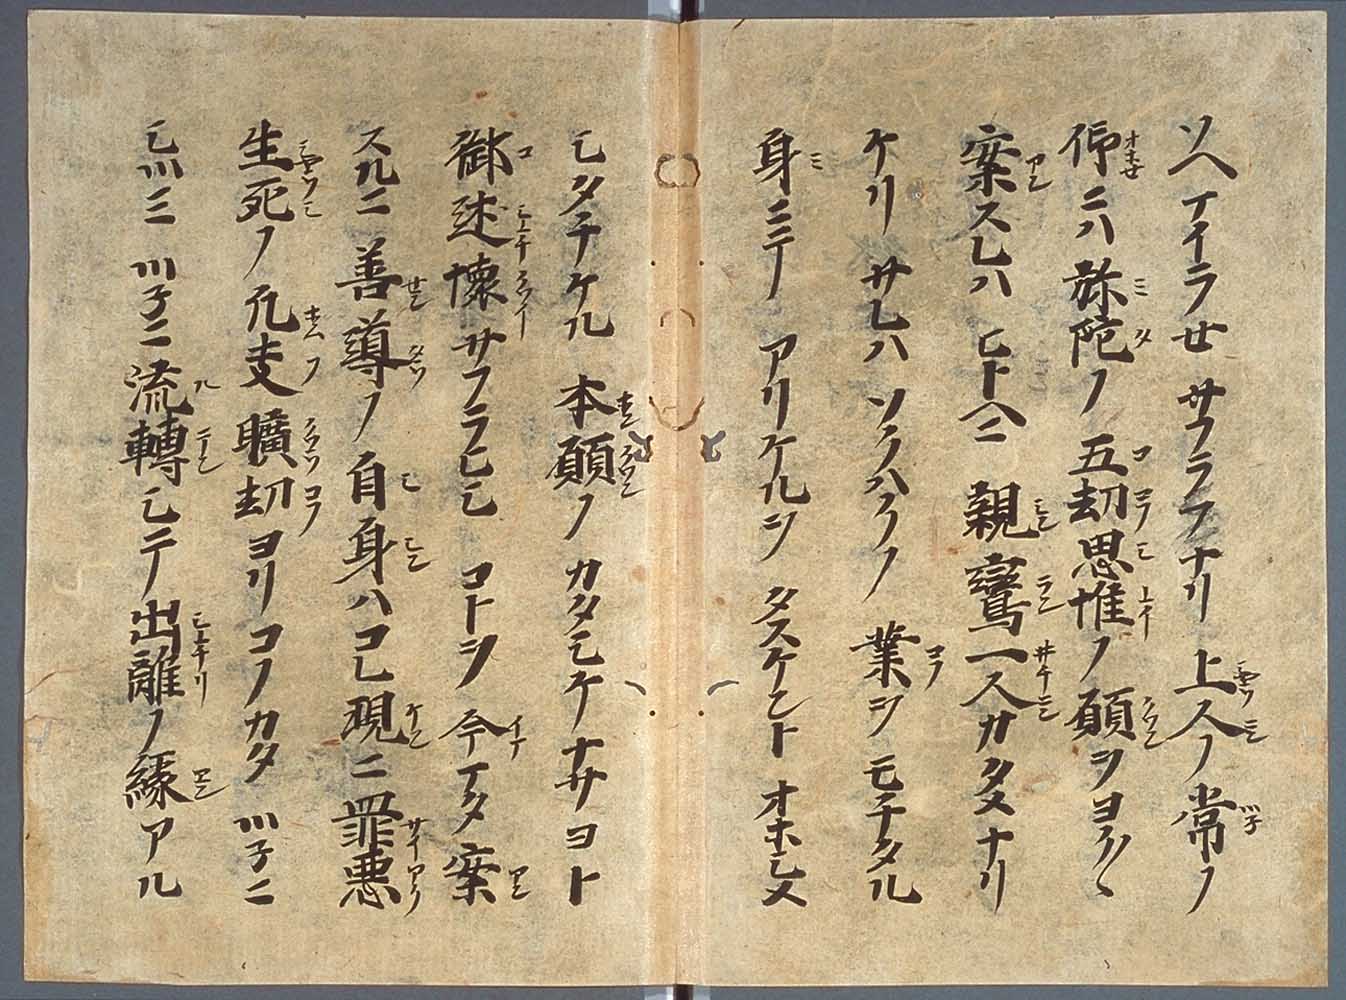 ソヘマイラセサフラフナリ上人ノ常ノ
仰ニハ弥陀ノ五劫思惟ノ願ヲヨク〳〵
案スレハヒトヘニ親鸞一人カタメナリ
ケリサレハソクハクノ業ヲモチタル
身ニテアリケルヲタスケントオホシメ
シタチケル本願ノカタシケナサヨト
御述懐サフラヒシコトヲ今マタ案
スルニ善導ノ自身ハコレ現ニ罪悪
生死ノ凡夫曠劫ヨリコノカタツネニ
シツミツネニ流轉シテ出離ノ縁アル